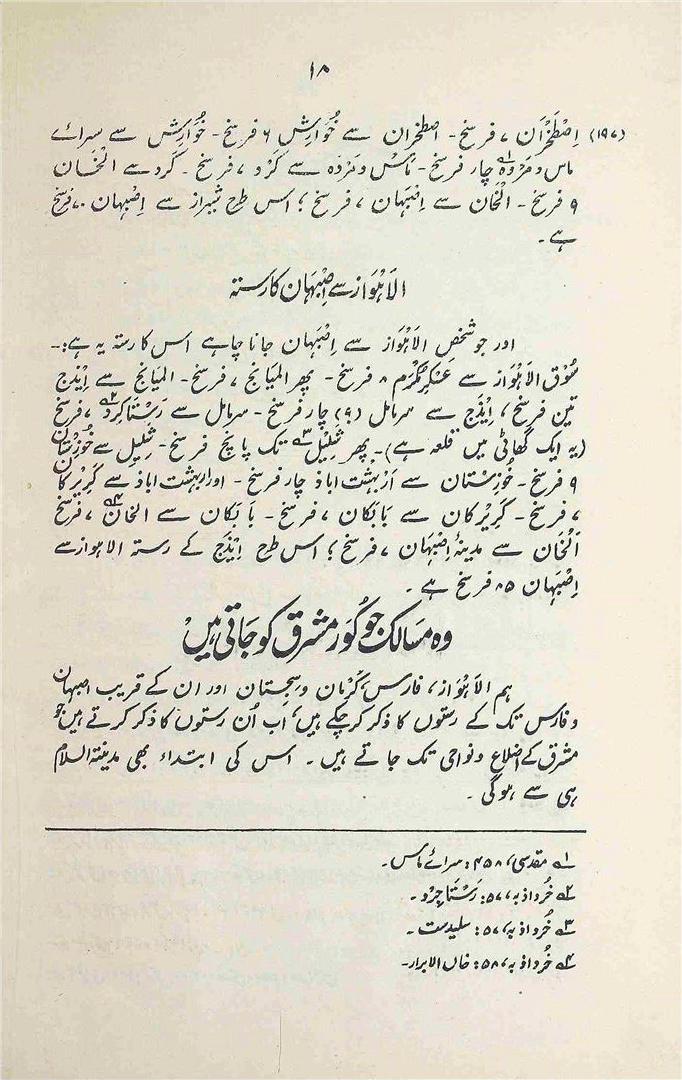 ۱۸
(۱۹۷) اِصْطَخْرَان ۷ فرسخ۔ اصطخران سے خُوَارِش ۶ فرسخ۔ خُوَارِش سے سرائے
ماس و مَرْوَہ ۱؎ چار فرسخ۔ ماس و مَرْدَہ سے کَرْد ۷ فرسخ۔ کَرد سے الْخَان
۹ فرسخ۔ الْخَان سے اِصْبَہَان ۷ فرسخ؛ اس طرح شیراز سے اِصْبَہان ۷۰ فرسخ
ہے۔
الاَہْوَاز سے اِصْبَہَان کا رستہ
اور جو شخص الاَہْوَاز سے اِصْبَہَان جانا چاہے اس کا رستہ یہ ہے:۔
سُوْق الاَہْوَاز سے عَسْکَرِ مُکْرَم ۸ فرسخ۔ پھر المَیَانَج ۷ فرسخ۔ المَیَانج سے اِیْذَج
تین فرسخ، اِیْذَج سے سرمامل (۹) چار فرسخ۔ سرمامل سے رَسْتَاکِرْد ۲؎ ۷ فرسخ
(یہ ایک گھاٹی میں قلعہ ہے)۔ پھر شَلِیْل ۳؎ تک پانچ فرسخ۔ شَلِیْل سے خُوْزِسْتَان
۹ فرسخ۔ خُوْزِسْتان سے اَرْبہشت اباذ چار فرسخ۔ اور اربہشت اباذ سے کَرِیْرکان
۷ فرسخ۔ کَرِیْرکان سے بَابکان ۷ فرسخ۔ بابکان سے الخان ۴؎ ۷ فرسخ
اَلْخَان سے مدینۂ اِصْبَہَان ۷ فرسخ؛ اس طرح اِیْذَج کے رستہ الاہواز سے
اِصْبَہَان ۸۵ فرسخ ہے۔
وہ مسالک جو کُوَرِ مشرق کو جاتی ہیں
ہم الاَہْوَاز، فارس، کَرْمَان و سِجِسْتَان اور ان کے قریب اصبہان
و فارس تک کے رستوں کا ذکر کر چکے ہیں، اب اُن رستوں کا ذکر کرتے ہیں جو
مشرق کے اضلاع و نواحی تک جاتے ہیں۔ اس کی ابتداء بھی مدینۃ السلام
ہی سے ہوگی۔
۱؎ مقدسی، ۴۵۸: سرائے ماس۔
۲؎ خُرداذبہ، ۵۷: رَسْتَاجِرْد۔
۳؎ خُرداذبہ، ۵۷: سلیدست۔
۴؎ خُرداذبہ، ۵۸: خان الابرار۔